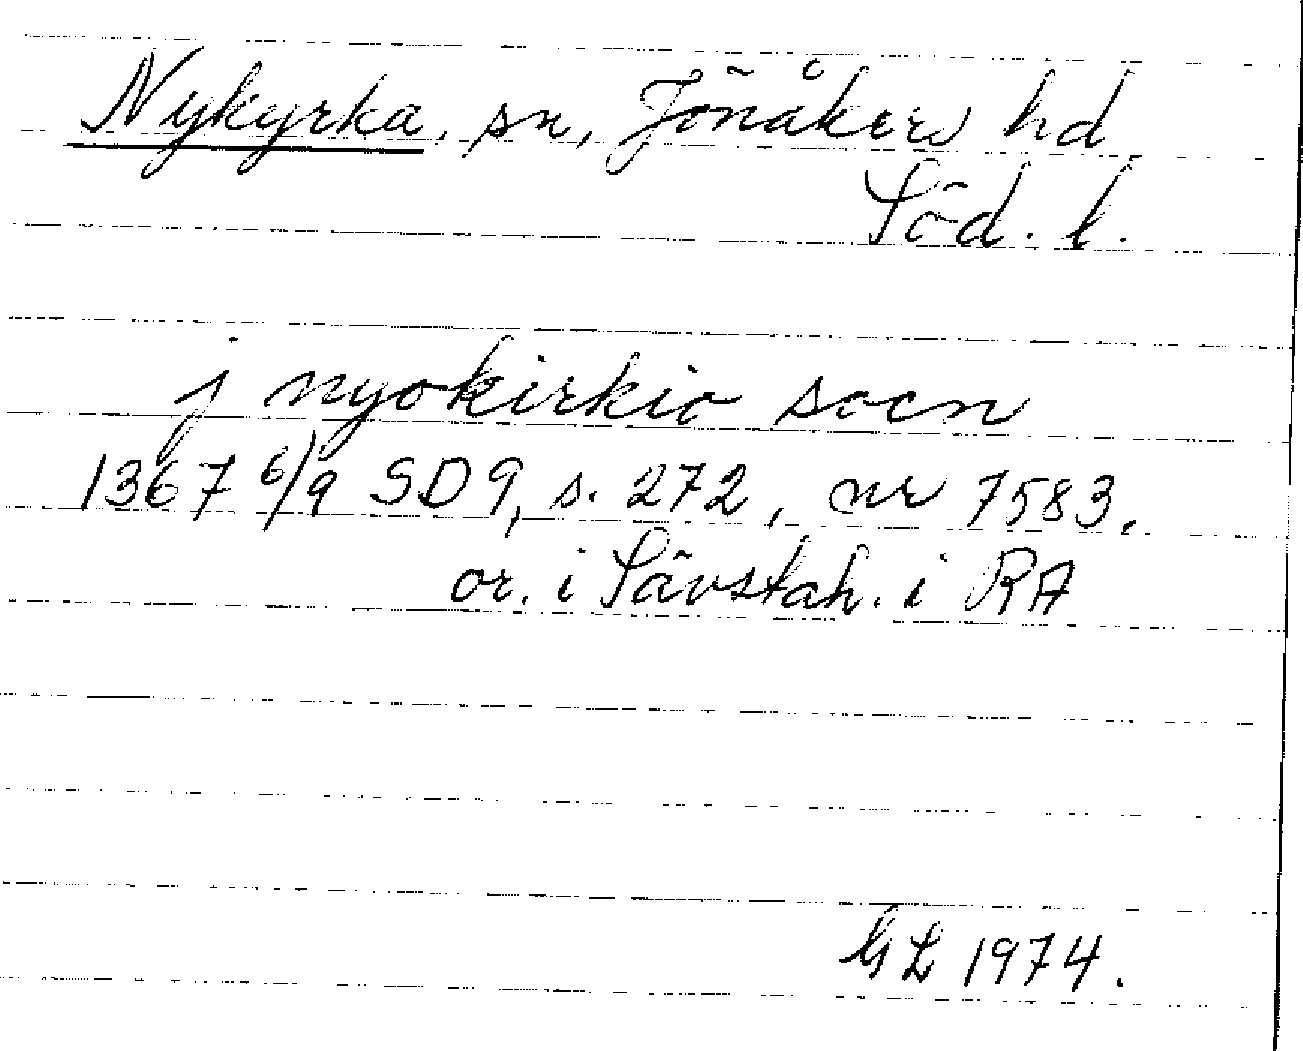 Nykyrka, sn, Jönåkers hd
Söd. l.
j nyokirkio socn
1367 6/9 SD 9, s. 272, nr 7583.
or. i Sävstah. i RA
GL 1974.